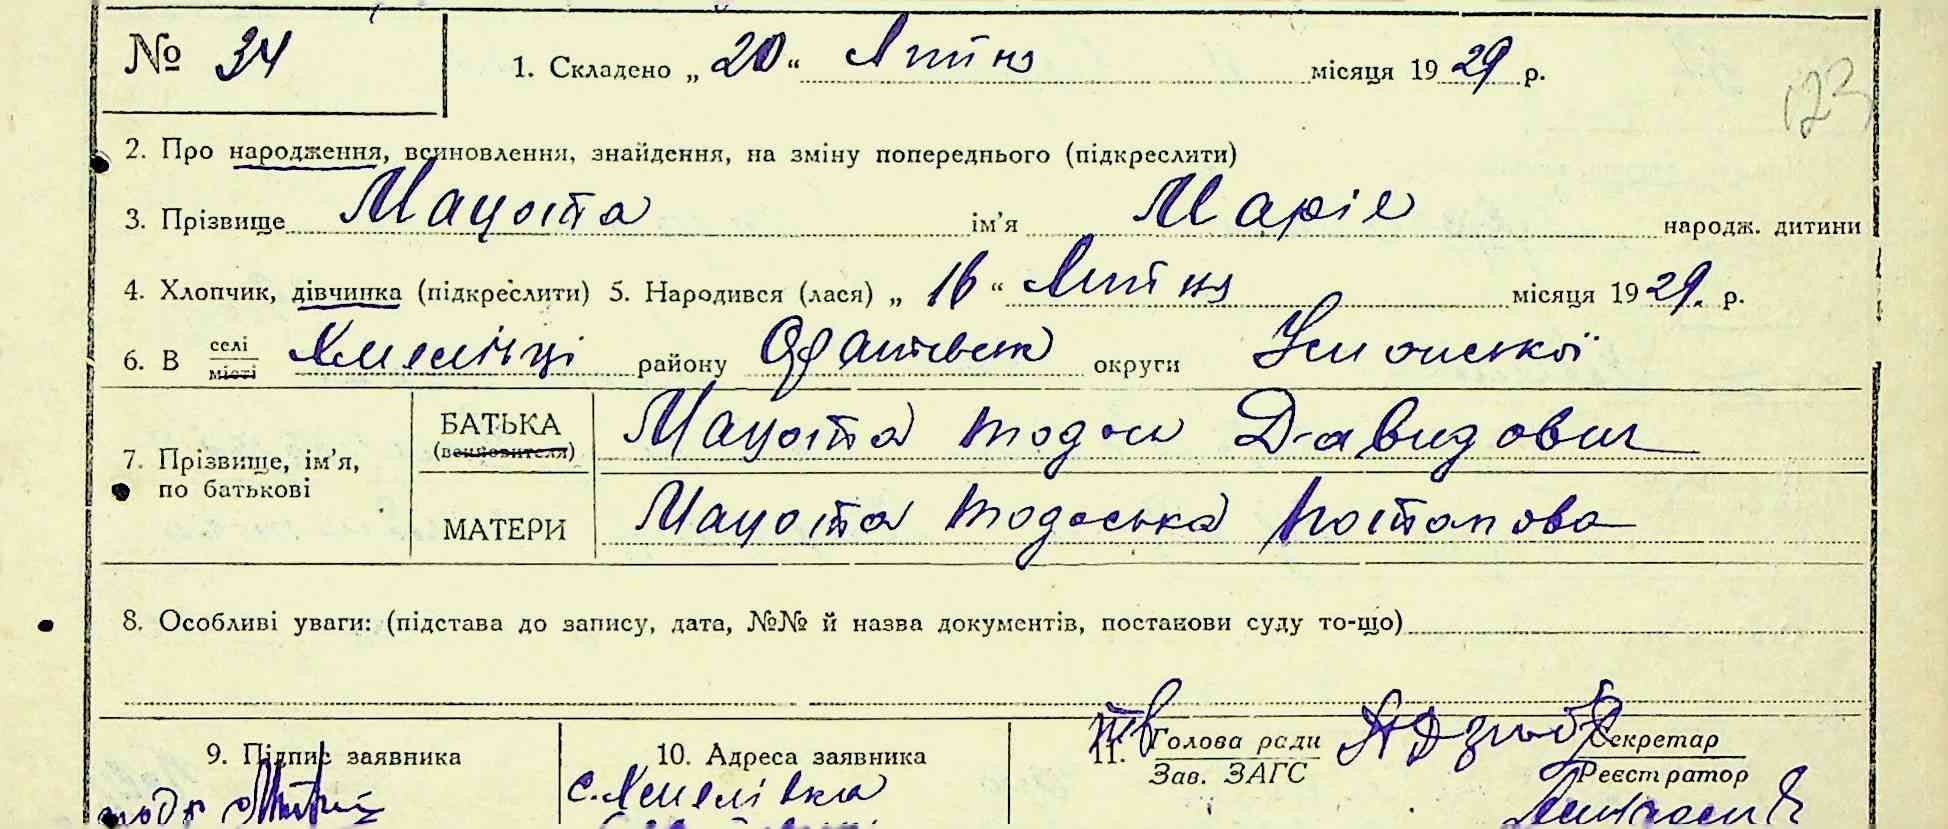 № 34
1. Складено „ 20 “ Липня місяця 19 29 р.
123
2. Про народження, всиновлення, знайдення, на зміну попереднього (підкреслити)
3. Прізвище Мацюта ім’я Марія народж. дитини
4. Хлопчик, дівчинка (підкреслити) 5. Народився (лася) „ 16 “ Липня місяця 19 29. р.
6. В селі місті Хмелівці району округи Уманської
7. Прізвище, ім’я, по батькові
БАТЬКА (всиновителя) Мацюта Тодось Давидович
МАТЕРИ Мацюта Тодоська Постапова
8. Особливі уваги: (підстава до запису, дата, №№ й назва документів, постанови суду то-що)
9. Підпис заявника
10. Адреса заявника
с. Хмелівка
11. Голова ради
Зав. ЗАГС
Секретар
Реєстратор